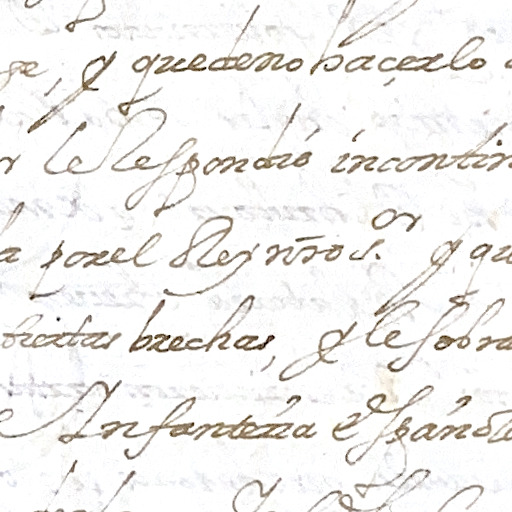 ge, y quedeno haçerlo
r le Respondió incontin
a por el Rey nr̃o s.or y qu
biertas brechas, y le sobra
e Infantería españo